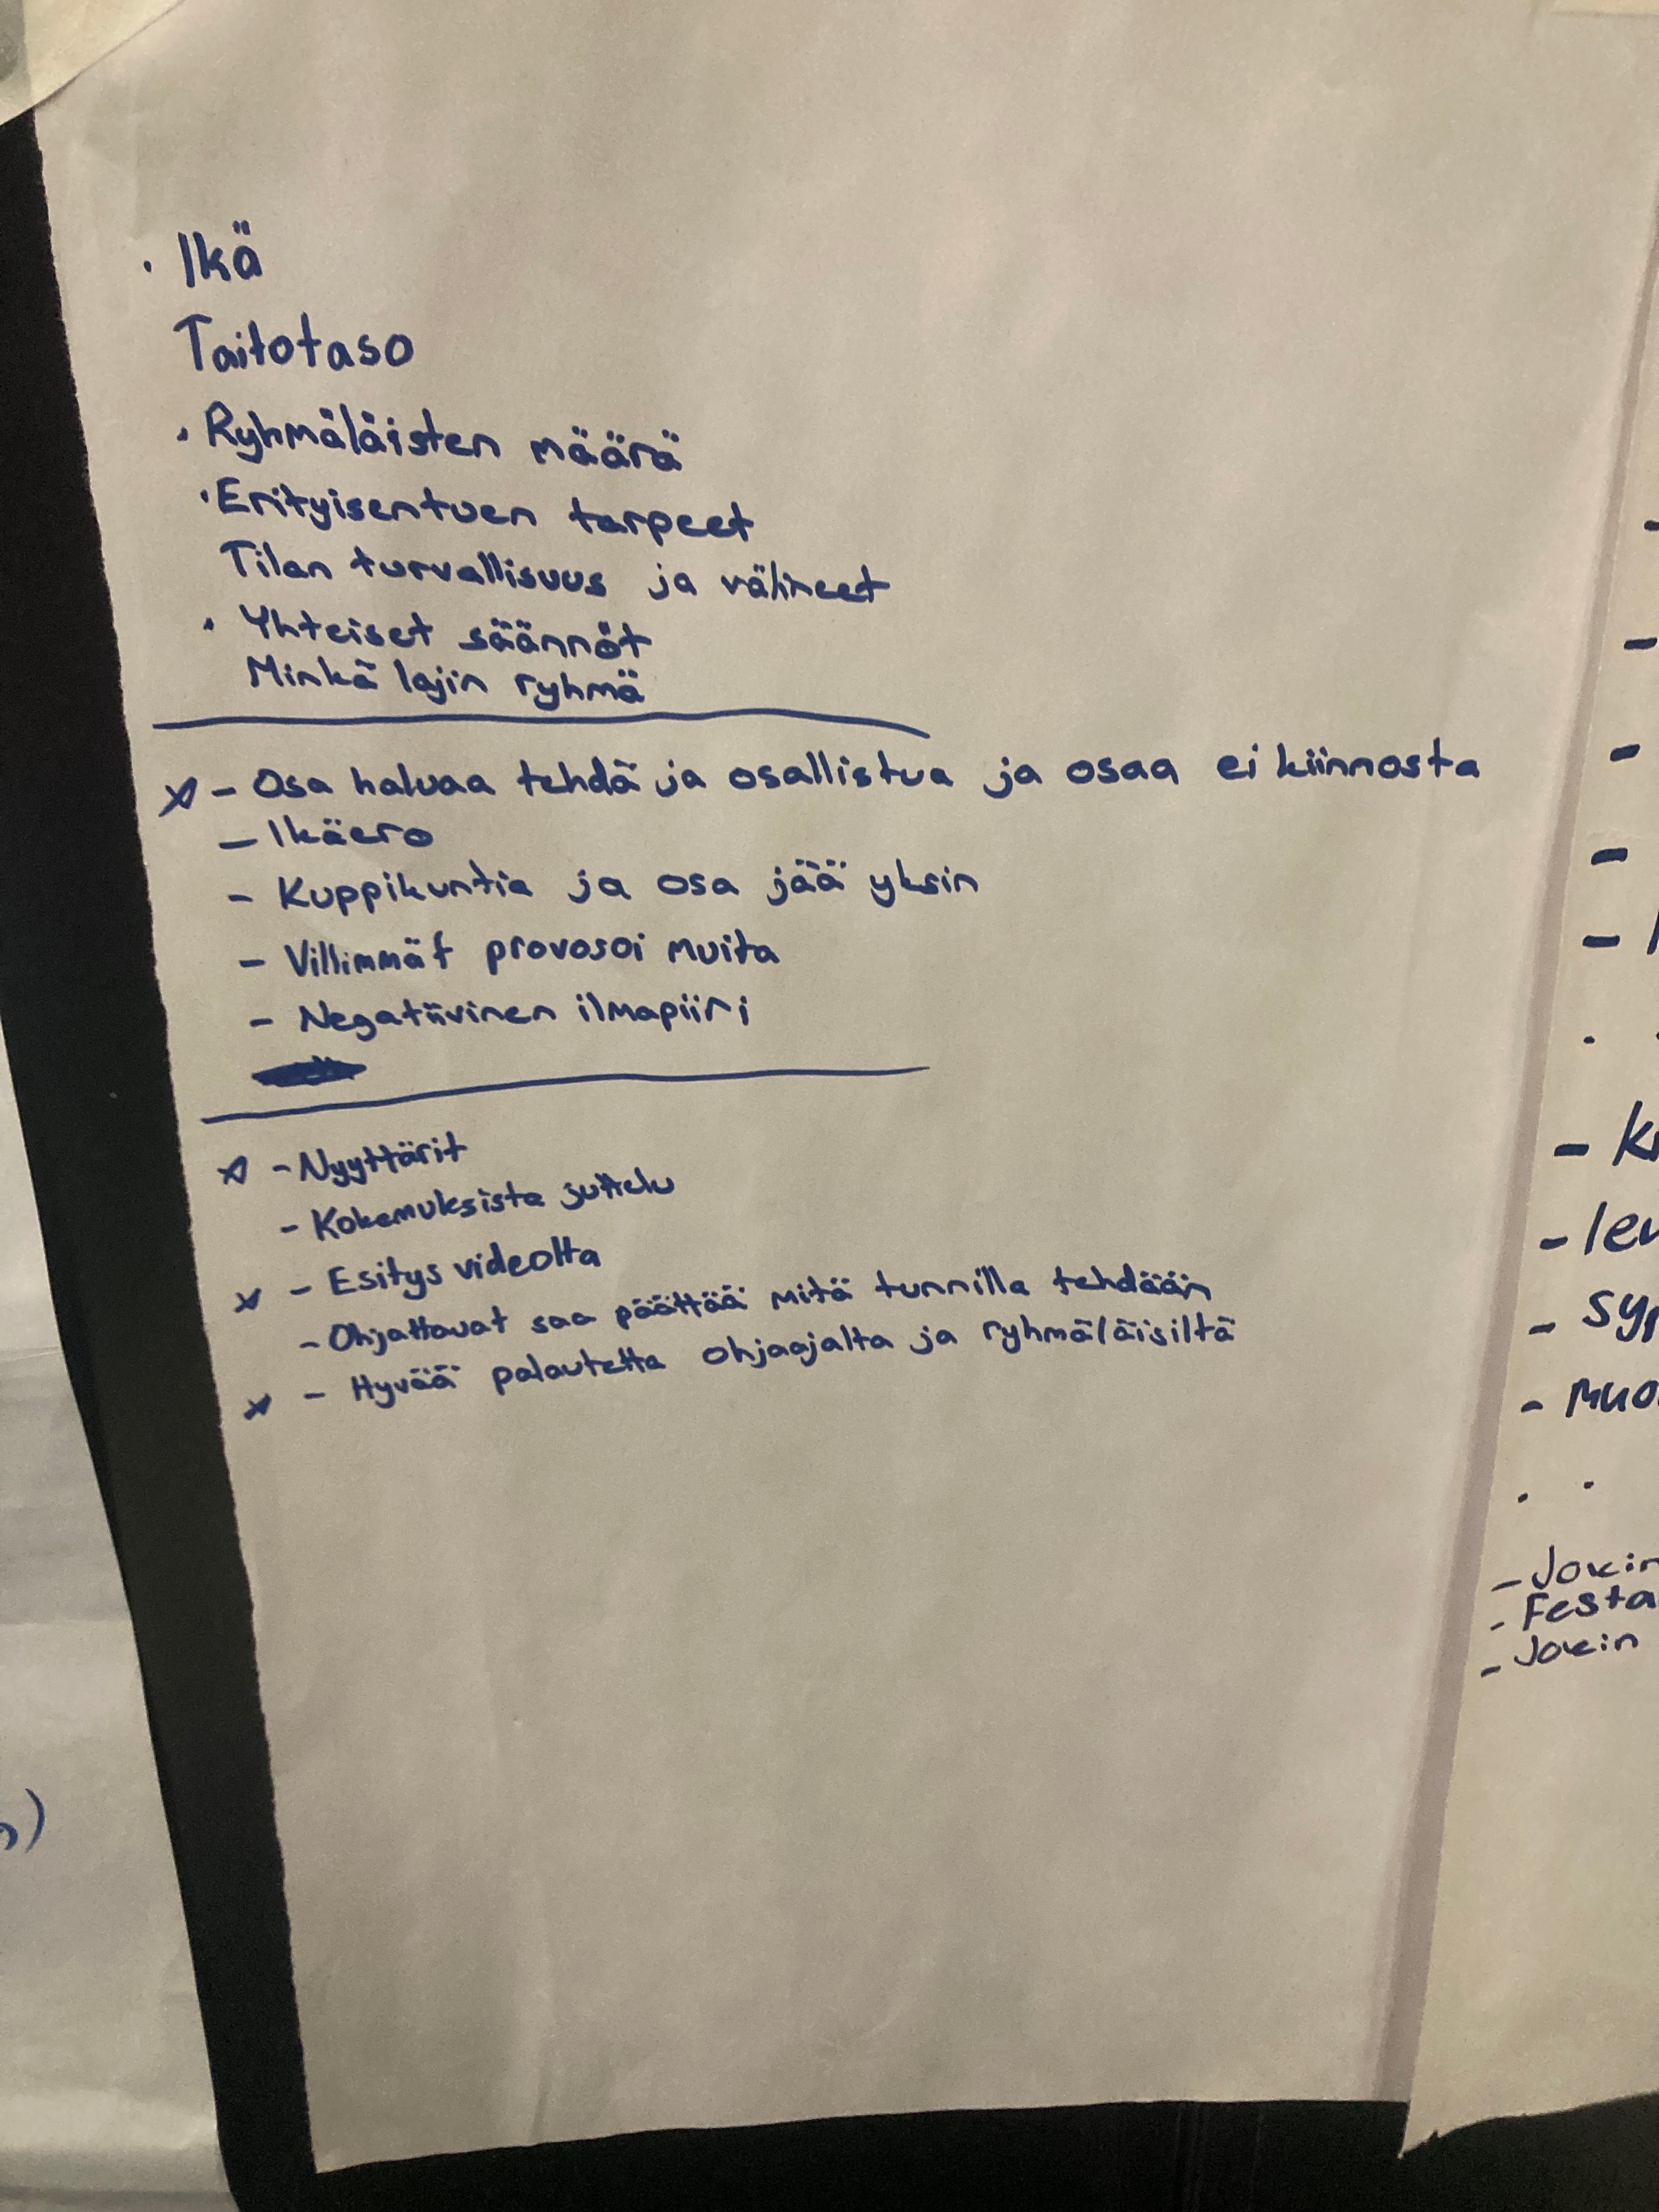 · Ikä
Taitotaso
· Ryhmäläisten määrä
· Erityisentuen tarpeet
Tilan turvallisuus ja välineet
· Yhteiset säännöt
Minkä lajin ryhmä
x - Osa haluaa tehdä ja osallistua ja osaa ei kiinnosta
- Ikäero
- Kuppikuntia ja osa jää yksin
- Villimmät provosoi muita
- Negatiivinen ilmapiiri
x - Nyyttärit
- Kokemuksista juttelu
x - Esitys videolta
- Ohjattavat saa päättää mitä tunnilla tehdään
x - Hyvää palautetta ohjaajalta ja ryhmäläisiltä
- Jokin
- Festa
- Jokin